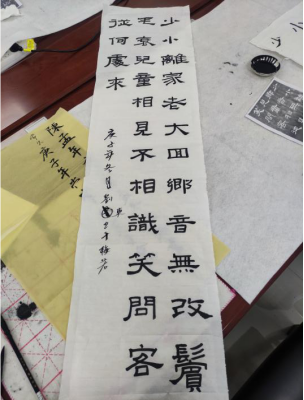 少小離家老大回鄉音無改鬢
毛衰兒童相見不相識笑問客
從何處來
庚子年冬月
陳孟年
庚子年